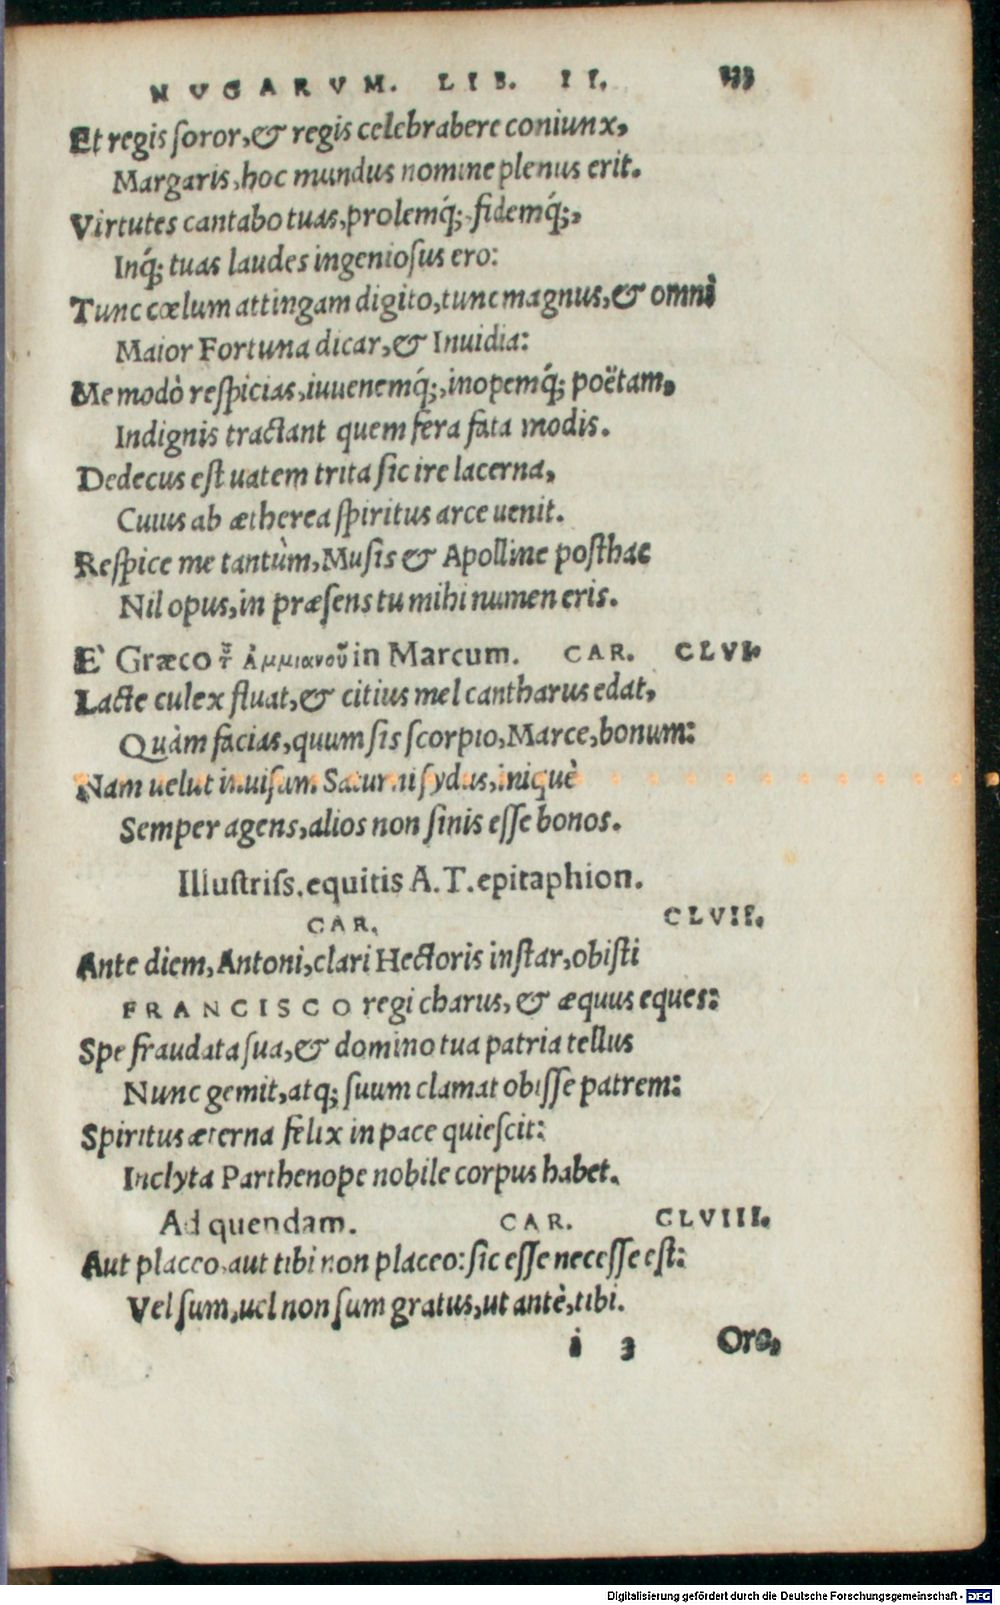 NUGARVM. LIB. II. 133
Et regis ſoror, & regis celebrabere coniunx,
Margaris, hoc mundus nomine plenus erit.
Virtutes cantabo tuas, prolemq́;, fidemq́;,
Inq́; tuas laudes ingenioſus ero:
Tunc cœlum attingam digito, tunc magnus, & omni
Maior Fortuna dicar, & Inuidia:
Me modò reſpicias, iuuenemq́;, inopemq́; poëtam,
Indignis tractant quem fera fata modis.
Dedecus eſt uatem trita ſic ire lacerna,
Cuius ab ætherea ſpiritus arce uenit.
Reſpice me tantùm, Muſis & Apolline poſthac
Nil opus, in præſens tu mihi numen eris.
E' Græco Ἀμμιανοῦ in Marcum. CAR. CLVI.
Lacte culex fluat, & citius mel cantharus edat,
Quàm facias, quum ſis ſcorpio, Marce, bonum:
Nam uelut inuiſum Saturni ſydus, iniquè
Semper agens, alios non ſinis eſſe bonos.
Illuſtriſs. equitis A. T. epitaphion.
CAR. CLVII.
Ante diem, Antoni, clari Hectoris inſtar, obiſti
FRANCISCO regi charus, & æquus eques:
Spe fraudata ſua, & domino tua patria tellus
Nunc gemit, atq; ſuum clamat obiſſe patrem:
Spiritus æterna felix in pace quieſcit:
Inclyta Parthenope nobile corpus habet.
Ad quendam. CAR. CLVIII.
Aut placeo, aut tibi non placeo: ſic eſſe neceſſe eſt:
Vel ſum, uel non ſum gratus, ut antè, tibi.
i 3 Ore,
Digitalisierung gefördert durch die Deutsche Forschungsgemeinschaft - DFG